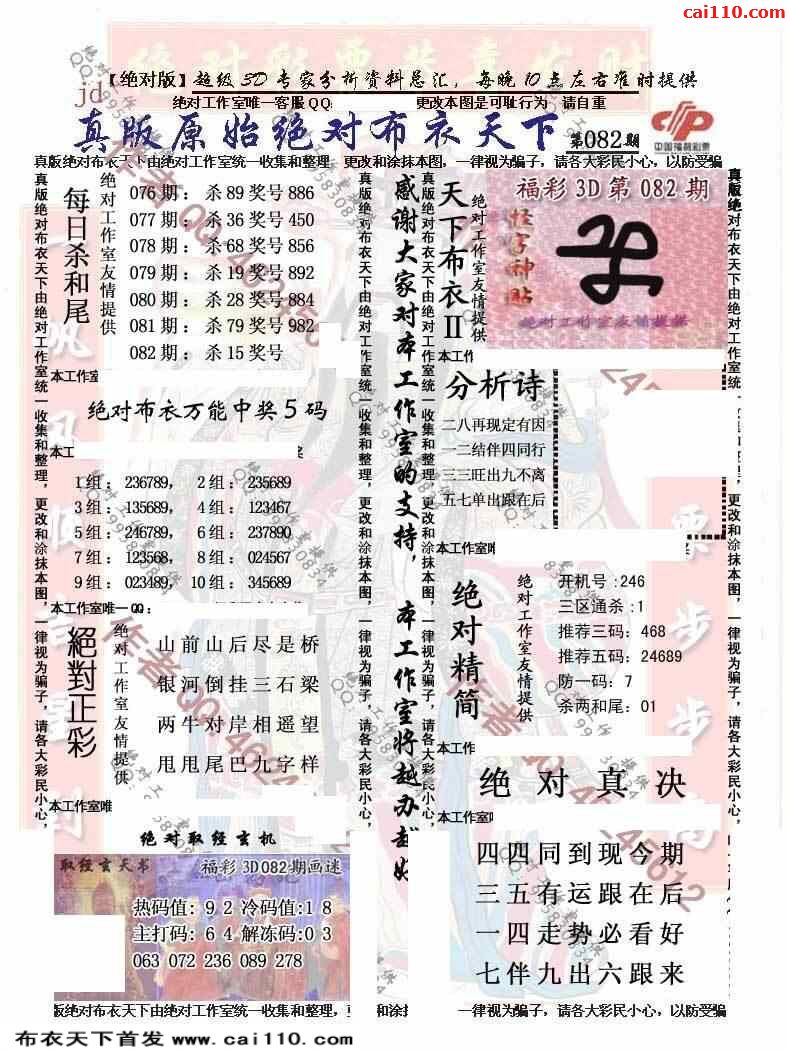 cai110.com
【绝对版】超级3D专家分析资料总汇，每晚10点左右准时提供
jd
绝对工作室唯一客服QQ:
更改本图是可耻行为 请自重
真版原始绝对布衣天下
第082期
中国福利彩票
真版绝对布衣天下由绝对工作室统一收集和整理 更改和涂抹本图，一律视为骗子，请各大彩民小心，以防受骗
真版绝对布衣天下由绝对工作室统一收集和整理，更改和涂抹本图，一律视为骗子，请各大彩民小心，
每日杀和尾
绝对工作室友情提供
076期：杀89奖号886
077期：杀36奖号450
078期：杀68奖号856
079期：杀19奖号892
080期：杀28奖号884
081期：杀79奖号982
082期：杀15奖号
本工作室
绝对布衣万能中奖5码
本工
1组：236789，2组：235689
3组：135689，4组：123467
5组：246789，6组：237890
7组：123568，8组：024567
9组：023489，10组：345689
本工作室唯一QQ：
絕對正彩
绝对工作室友情提供
山前山后尽是桥
银河倒挂三石梁
两牛对岸相遥望
甩甩尾巴九字样
本工作室唯
绝对取经玄机
取经玄天书
福彩3D082期画谜
热码值：92冷码值:18
主打码：64解冻码:03
063 072 236 089 278
真版绝对布衣天下由绝对工作室统一收集和整理，更改和涂抹本图，一律视为骗子，请各大彩民小心，
感谢大家对本工作室的支持，本工作室将越办越好
真版绝对布衣天下由绝对工作室统一收集和整理，更改和涂抹本图，一律视为骗子，请各大彩民小心，
天下布衣II
绝对工作室友情提供
福彩3D第082期
怪字神贴
绝对工作室友情提供
本工作
分析诗
二八再现定有因
一二结伴四同行
三三旺出九不离
五七单出跟在后
本工作室唯
绝对精简
绝对工作室友情提供
开机号:246
三区通杀:1
推荐三码：468
推荐五码：24689
防一码：7
杀两和尾：01
本工作
绝对真决
本工作室
四四同到现今期
三五有运跟在后
一四走势必看好
七伴九出六跟来
真版绝对布衣天下由绝对工作室统一收集和整理，更改和涂抹本图，一律视为骗子，请各大彩民小心，
版绝对布衣天下由绝对工作室统一收集和整理，更
和涂抹
一律视为骗子，请各大彩民小心，以防受骗
布衣天下首发 www.cai110.com